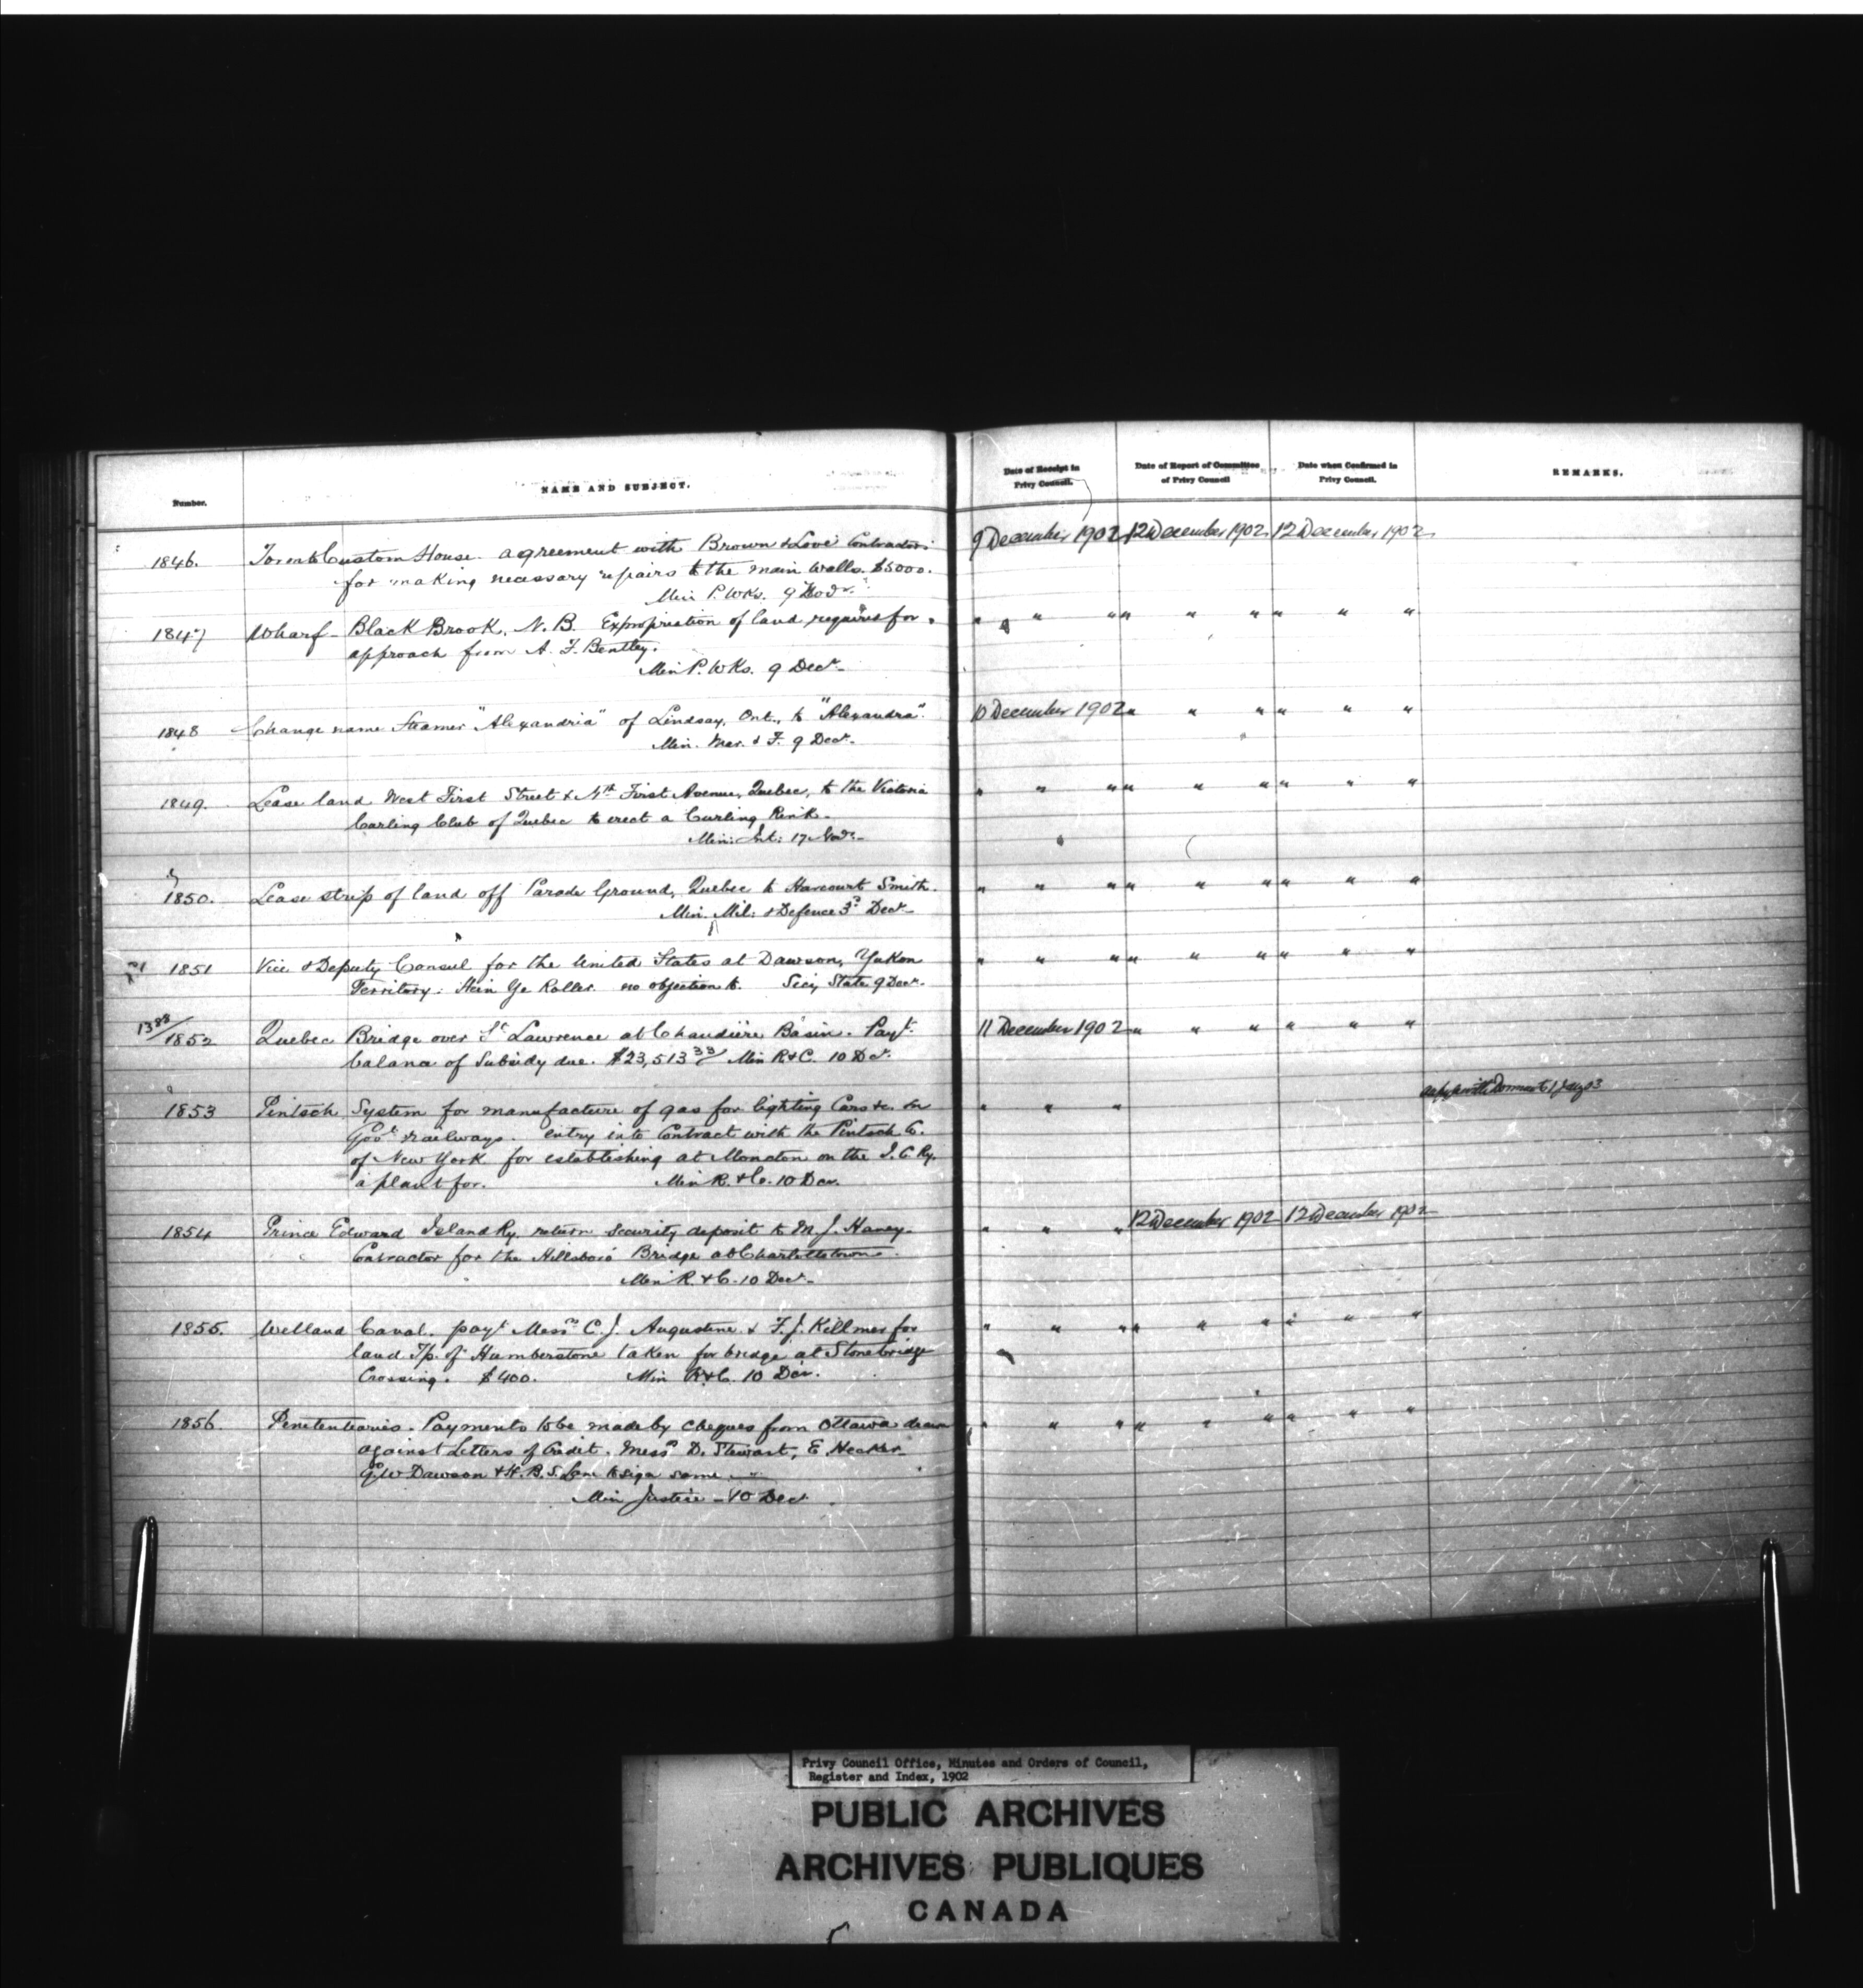 Number.
NAME AND SUBJECT.
Date of Receipt in Privy Council.
Date of Report of Committee of Privy Council
Date when Confirmed in Privy Council.
REMARKS.
1846. Toronto Custom House. agreement with Brown & Love Contractors 9 December 1902 12 December 1902 12 December 1902
for making necessary repairs to the main walls. $5000.
Min P. Wks. 9
1847 Wharf - Black Brook, N.B. Expropriation of land required for " " " " " " " " "
approach from A. F. Bentley.
Min P. Wks. 9 Decr.
1848 Change name Steamer "Alexandria" of Lindsay, Ont., to "Alexandra". 10 December 1902 " " " " " "
Min. Mar. & F. 9 Decr.
1849. Lease land West First Street & Nth First Avenue, Quebec, to the Victoria " " " " " " " " "
Curling Club of Quebec to erect a Curling Rink.
Min: Int: 17 Novr.
1850. Lease strip of land off Parade Ground, Quebec to Harcourt Smith. " " " " " " " " "
Min. Mil: & Defence 3d Decr.
1851 Vice & Deputy Consul for the United States at Dawson, Yukon " " " " " " " " "
Territory: Hein Ye Roller. no objection to. Secy State 9 Decr.
1388/1852 Quebec Bridge over St Lawrence at Chaudière Basin. Payt. 11 December 1902 " " " " " "
balance of Subsidy due. $23,513 33/ Min R & C. 10 Dec.
1853 Pintsch System for manufacture of gas for lighting Cars &c. on " " "
Govt railways. entry into Contract with the Pintsch Co.
of New York for establishing at Moncton on the I. C. Ry.
a plant for. Min R. & C. 10 Dec.
1854 Prince Edward Island Ry. return security deposit to M. J. Haney " " " 12 December 1902 12 December 1902
Contractor for the Hillsboro' Bridge at Charlottetown.
Min R. & C. 10 Decr.
1855. Welland Canal. payt Messrs C. J. Augustine & F. J. Killmer for " " " " " " " " "
land Tp. of Humberstone taken for bridge at Stonebridge
Crossing. $400. Min R & C. 10 Dec.
1856. Penitentiaries. Payments to be made by cheques from Ottawa drawn " " " " " " " " "
against Letters of Credit. Messrs D. Stewart, E.
G. W Dawson & H. B. S. Lane to sign same.
Min Justice - 10 Decr.
Privy Council Office, Minutes and Orders of Council,
Register and Index, 1902
PUBLIC ARCHIVES
ARCHIVES PUBLIQUES
CANADA